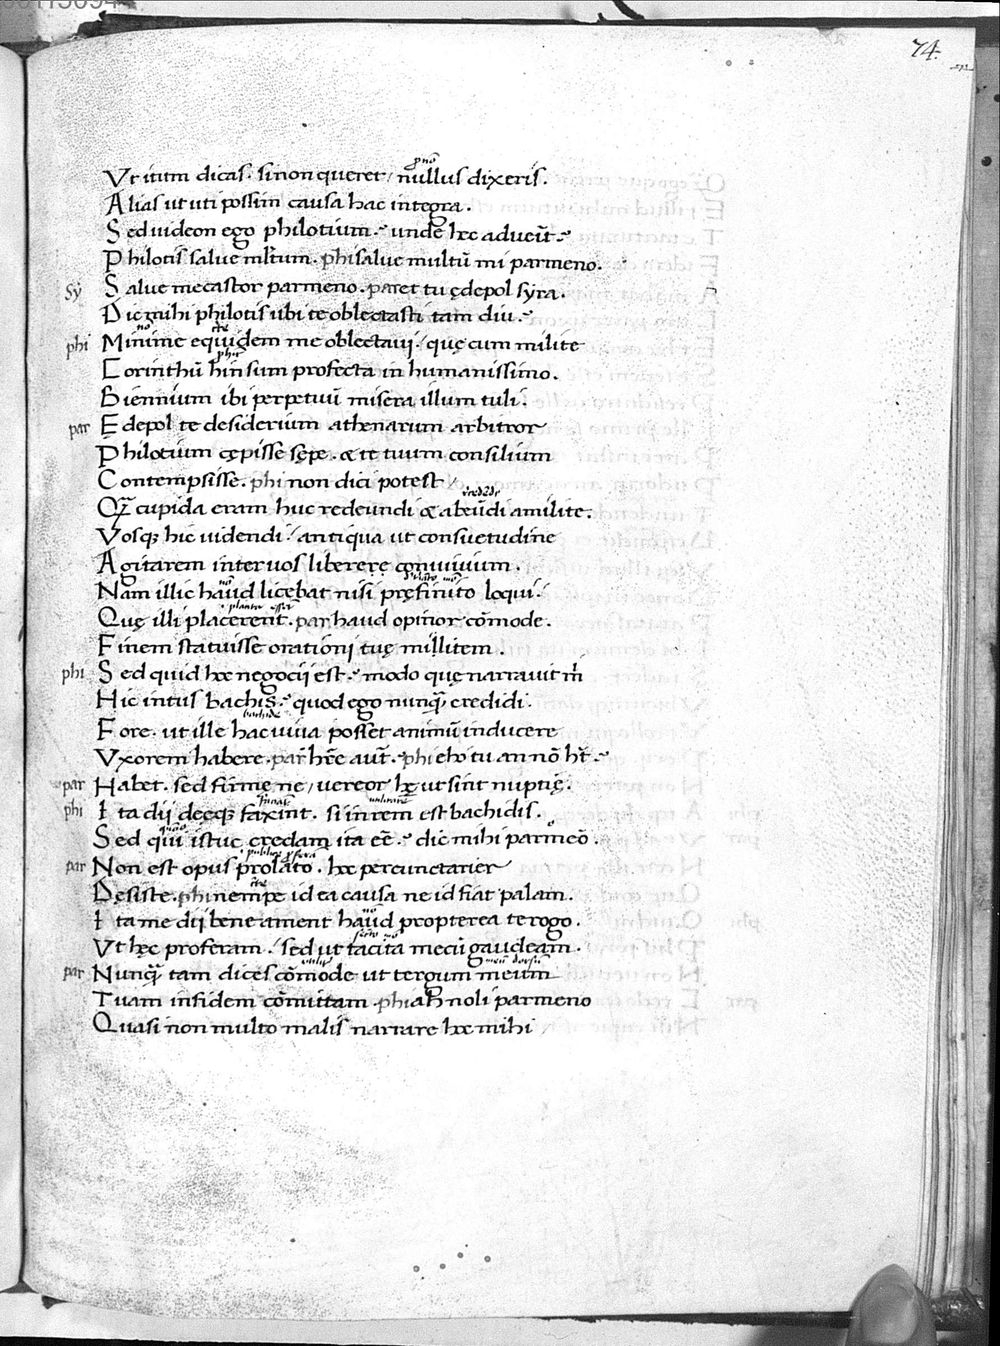 74.
p̄ no
Vt itim dicas. si non queret / nullus dixeris.
Alias ut uti possim causa hac integra.
Sed uideon ego philotium. unde hęc adueñt.
Philotis salue mltum. phi salue multū mi parmeno.
Sÿ Salue mecastor parmeno. par et tu ędepol syra.
Dic mihi philotis ubi te oblectasti tam diu.
no che
phi Minime equidem me oblectaui. quę cum milite
Corinthū hin sum profecta in humanissimo.
Biennium ibi perpetuū misera illum tuli.
par Edepol te desiderium athenarum arbitror
Philotium cępisse sępe. & te tuum consilium
Contempsisse. phi non dici potest
Qȝ cupida eram huc redeundi & abeūdi a milite.
Vosq; hic uidendi / antiqua ut consuetudine
Agitarem inter uos liberere conuiuium.
Nam illic haud licebat nisi pręfinito loqui
Quę illi placerent. par haud opinor cōmode.
Finem statuisse orationi tuę militem.
phi Sed quid hęc negocij est. modo quę narrauit m̄
Hic intus bachis. quod ego nunq̄ credidi.
bachide
Fore. ut ille hac uiua posset animū inducere
Vxorem habere. par hr̄e aut̄. phi eho tu an nō ht̄.
par Habet. sed firmę ne / uereor hę ut sint nuptię.
phi Ita dij deęq; faxint. si in rem est bachidis.
Sed qui istuc credam ita eē. dic mihi parmeō.
par Non est opus prolato. hęc percunctarier
Dęsiste. phi nempe id ea causa ne id fiat palam.
Ita me dij bene ament haud propterea te rogo.
Vt hęc proferam. sed ut tacita mecū gaudeam.
par Nunq̄ tam dices cōmode ut tergum meum
Tuam in fidem cōmittam. phi ah noli parmeno
Quasi non multo malis narrare hęc mihi